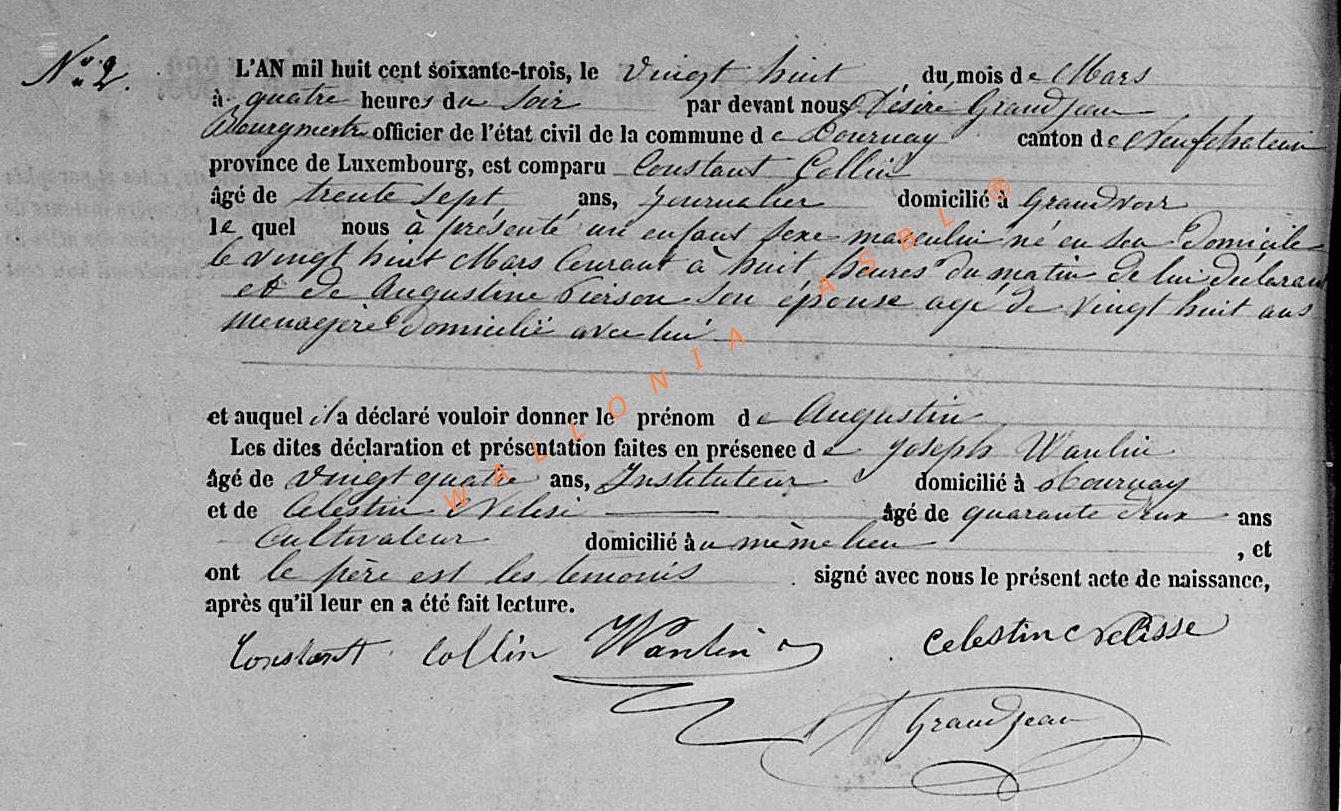 N° 2.
L'AN mil huit cent soixante-trois, le vingt huit du mois de Mars
à quatre heures du soir par devant nous Désiré Grandjean
Bourgmestre officier de l'état civil de la commune de Tournay canton de Neufchateau
province de Luxembourg, est comparu Constant Collin
âgé de trente sept ans, journalier domicilié à Grandvoir
le quel nous à présenté un enfant sexe masculin né en son domicile
le vingt huit Mars Courant à huit heures du matin de lui déclarant
et de Augustine Pierson son épouse agé de vingt huit ans
menagère domicilié avec lui
et auquel il a déclaré vouloir donner le prénom de Augustin
Les dites déclaration et présentation faites en présence de Joseph Wanlin
âgé de vingt quatre ans, Instituteur domicilié à Tournay
et de Celestin Nelisi âgé de quarante deux ans
Cultivateur domicilié à u même lieu , et
ont le père est les temonis signé avec nous le présent acte de naissance,
après qu'il leur en a été fait lecture.
Constant Collin Wanlin Celestin Nelisse
Grandjean
WALLONIA ASBL ®